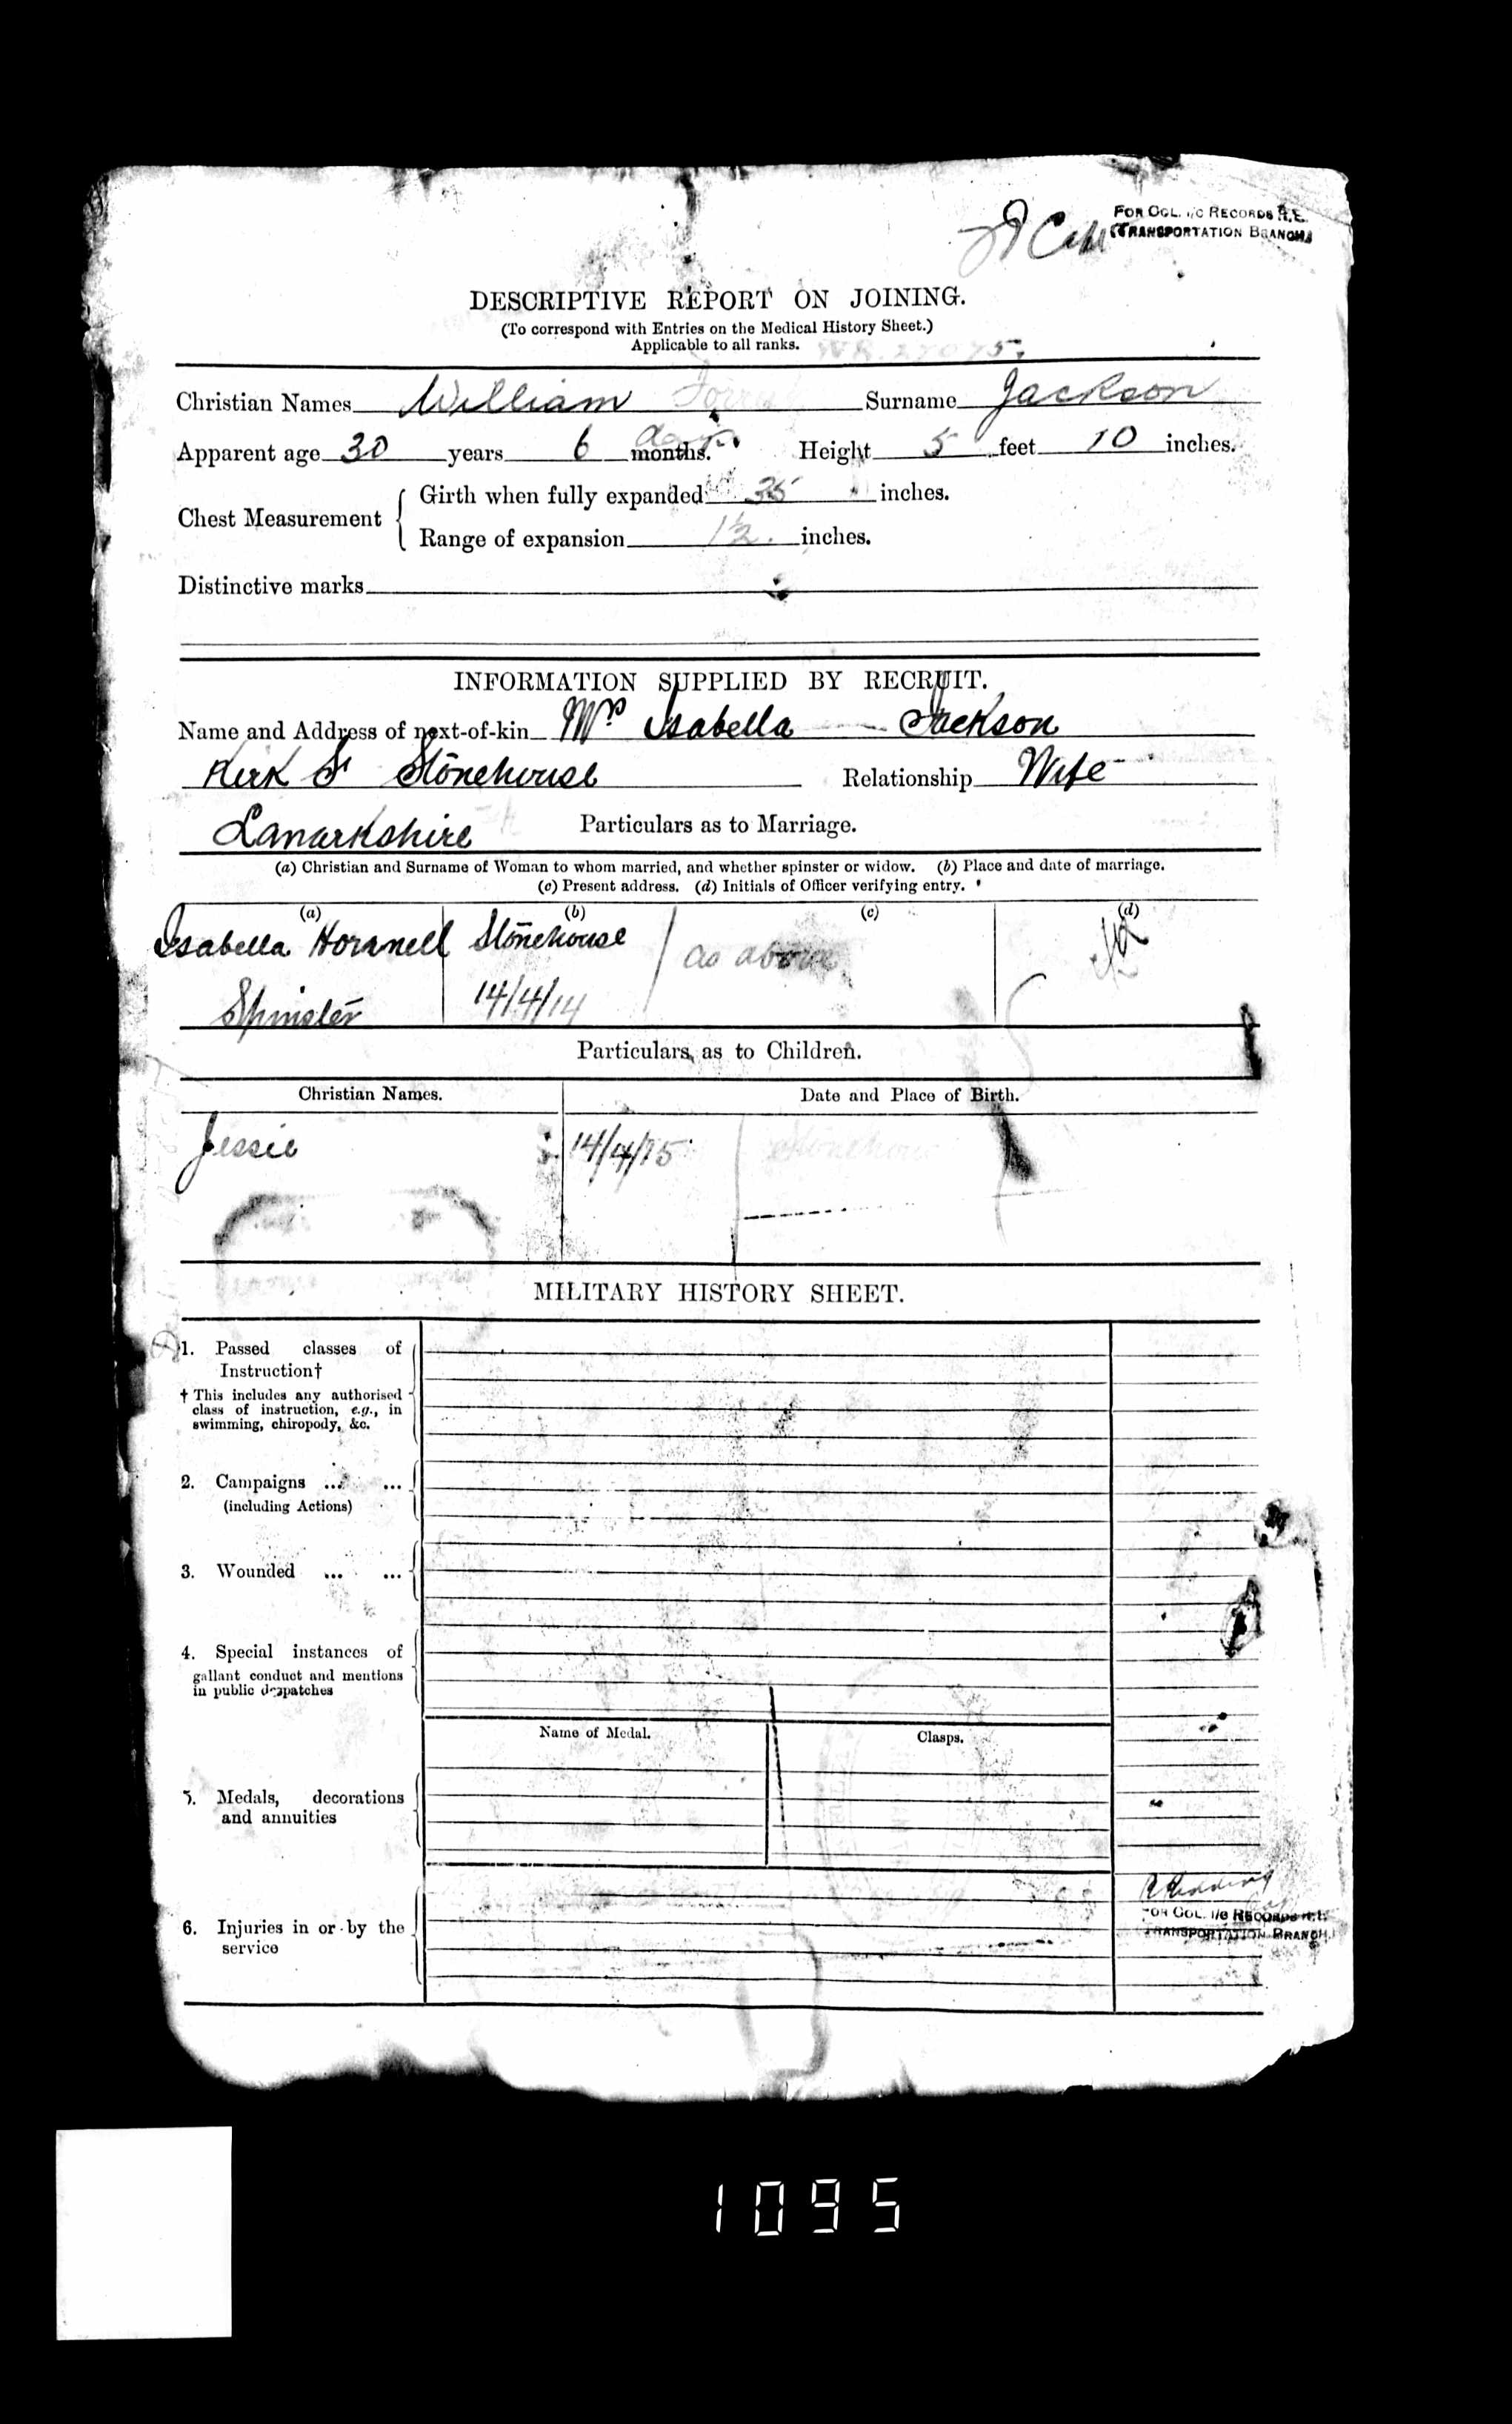 FOR COL. I/C RECORDS R.E.
(TRANSPORTATION BRANCH)
DESCRIPTIVE REPORT ON JOINING.
(To correspond with Entries on the Medical History Sheet.)
Applicable to all ranks.
Christian Names William Surname Jackson
Apparent age 30 years 6 months. days. Height 5 feet 10 inches.
Chest Measurement { Girth when fully expanded 35 inches.
Range of expansion 1½ inches.
Distinctive marks
INFORMATION SUPPLIED BY RECRUIT.
Name and Address of next-of-kin Mrs Isabella Jackson
Kirk St Stonehouse Relationship Wife
Lanarkshire Particulars as to Marriage.
(a) Christian and Surname of Woman to whom married, and whether spinster or widow. (b) Place and date of marriage.
(c) Present address. (d) Initials of Officer verifying entry.
(a) (b) (c) (d)
Isabella Stonehouse as above
Spinster 14/4/14
Particulars as to Children.
Christian Names. Date and Place of Birth.
Jessie 14/4/15 Stonehouse
MILITARY HISTORY SHEET.
1. Passed classes of
Instruction†
† This includes any authorised
class of instruction, e.g., in
swimming, chiropody, &c.
2. Campaigns ... ...
(including Actions)
3. Wounded ... ...
4. Special instances of
gallant conduct and mentions
in public despatches
Name of Medal. Clasps.
5. Medals, decorations
and annuities
6. Injuries in or by the
service
FOR COL. I/C RECORDS R.E.
TRANSPORTATION BRANCH.
1095